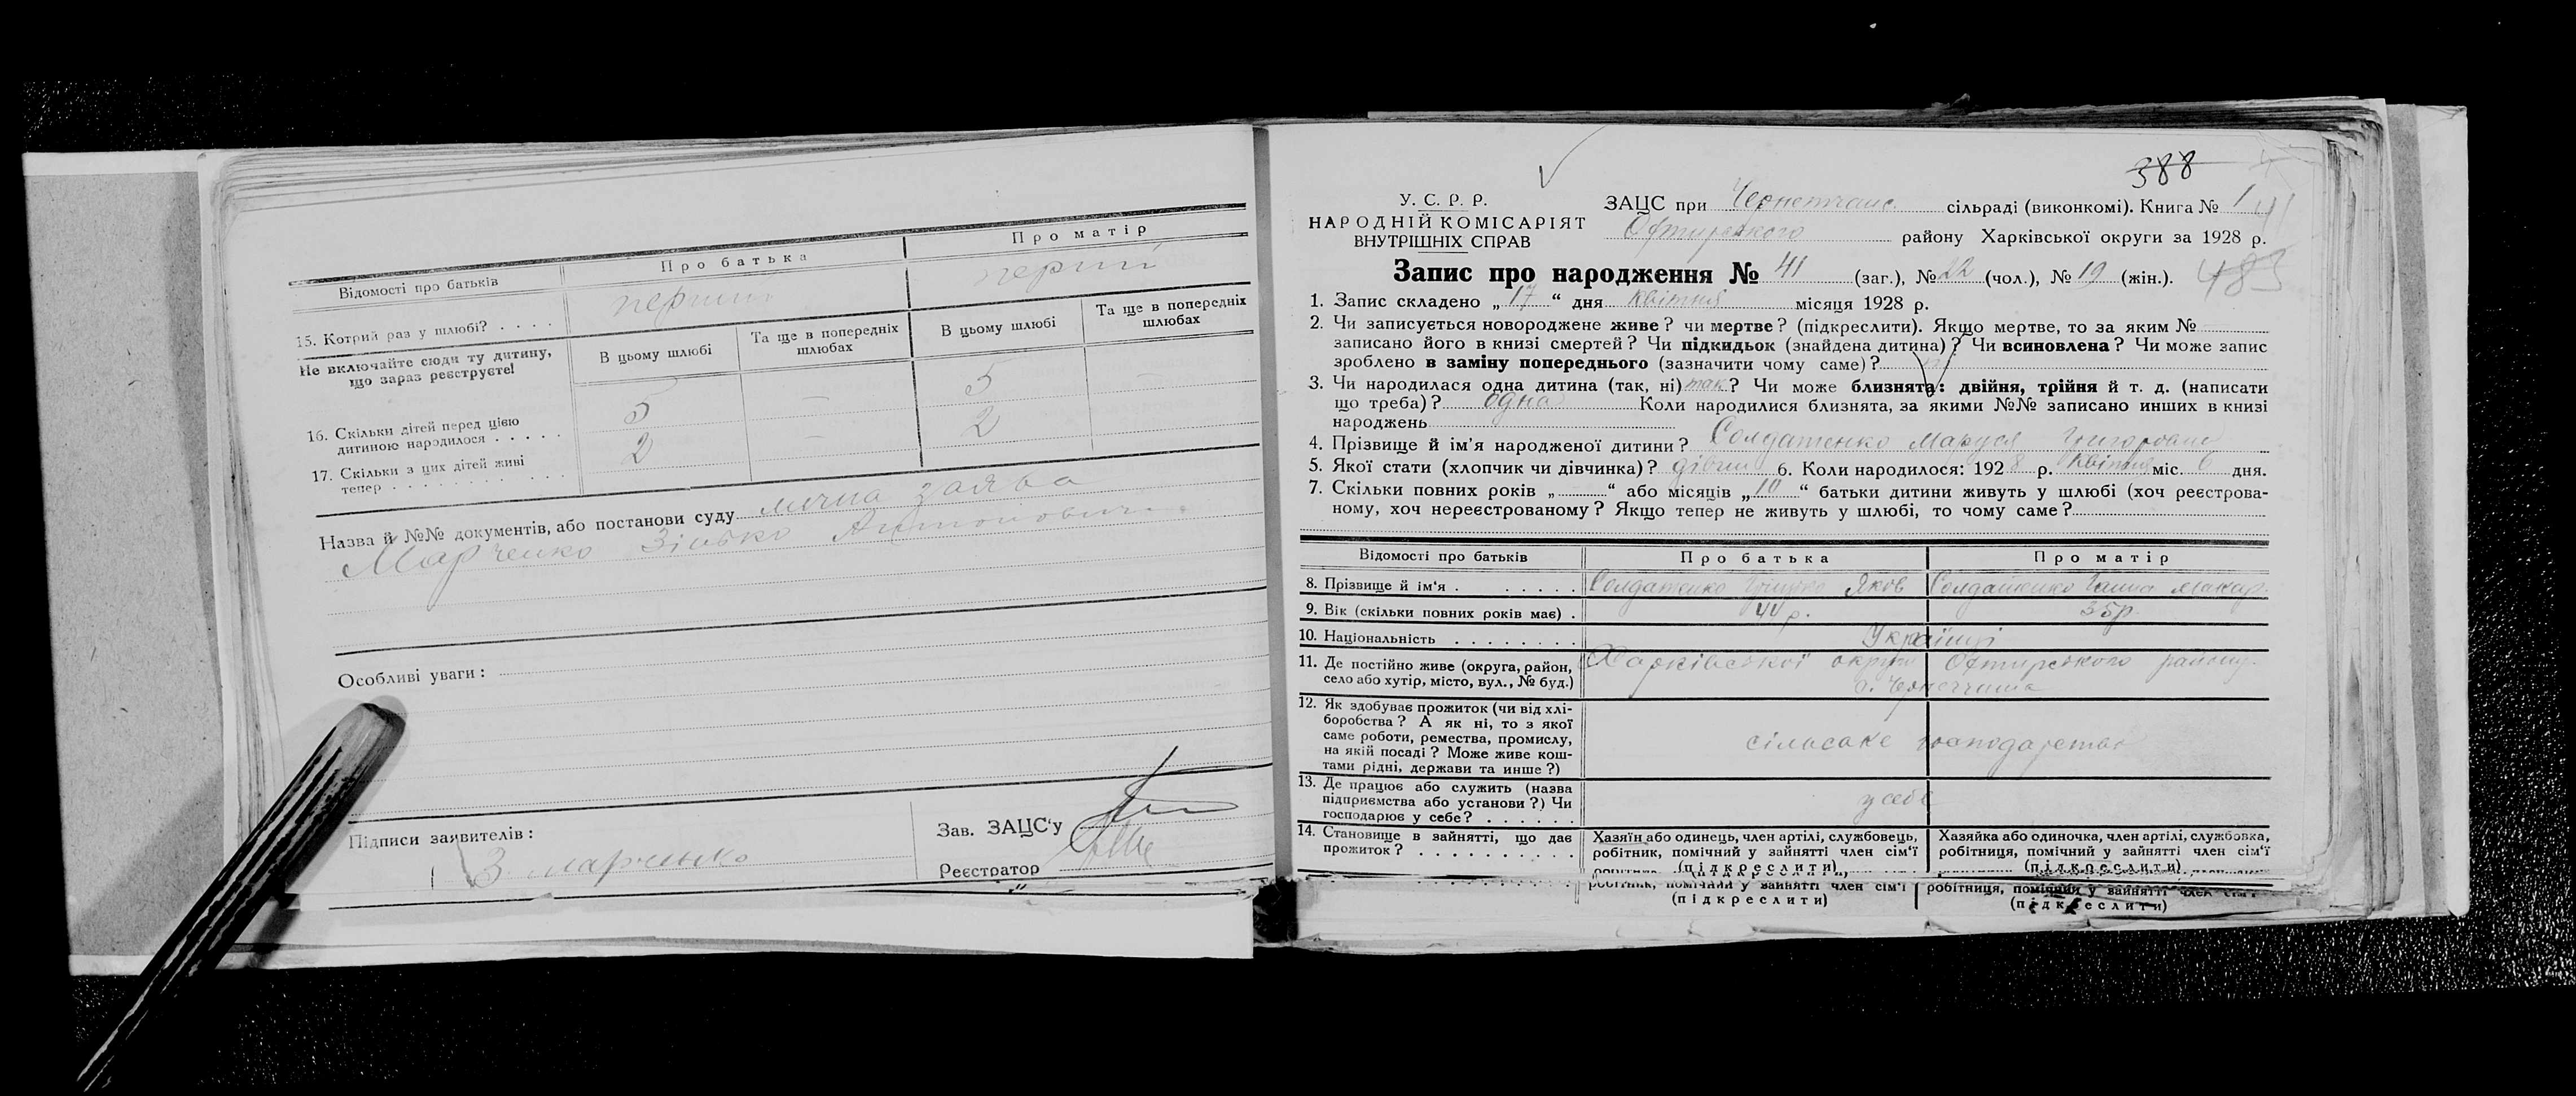 Відомості про батьків
Про батька
Про матір
15. Котрий раз у шлюбі? . . . .
перший
перший
Не включайте сюди ту дитину, що зараз реєструєте!
В цьому шлюбі
Та ще в попередніх шлюбах
В цьому шлюбі
Та ще в попередніх шлюбах
16. Скільки дітей перед цією дитиною народилося . . . . .
5 — 5 —
17. Скільки з цих дітей живі тепер . . . . . . . . . . . .
2 — 2
Назва й №№ документів, або постанови суду лична заява
Марченко Зінько Антонович
Особливі уваги:
Підписи заявителів:
З. Марченко
Зав. ЗАЦС'у
Реєстратор
388
У. С. Р. Р.
НАРОДНІЙ КОМІСАРІЯТ
ВНУТРІШНІХ СПРАВ
ЗАЦС при Чернеччанс. сільраді (виконкомі). Книга № 1
Охтирського району Харківської округи за 1928 р.
Запис про народження № 41 (заг.), № 22 (чол.), № 19 (жін.).
483
1. Запис складено „17“ дня квітня місяця 1928 р.
2. Чи записується новороджене живе? чи мертве? (підкреслити). Якщо мертве, то за яким №
записано його в книзі смертей? Чи підкидьок (знайдена дитина)? Чи всиновлена? Чи може запис
зроблено в заміну попереднього (зазначити чому саме)?
3. Чи народилася одна дитина (так, ні) так? Чи може близнята: двійня, трійня й т. д. (написати
що треба)? одна Коли народилися близнята, за якими №№ записано инших в книзі
народжень
4. Прізвище й ім'я народженої дитини? Солдатенко Маруся Григоровна
5. Якої стати (хлопчик чи дівчинка)? дівчин 6. Коли народилось: 1928 р. квітня міс. 6 дня.
7. Скільки повних років „ “ або місяців „10“ батьки дитини живуть у шлюбі (хоч реєстрова-
ному, хоч нереєстрованому? Якщо тепер не живуть у шлюбі, то чому саме?
Відомості про батьків
Про батька
Про матір
8. Прізвище й ім'я . . . . . .
Солдатенко Грицько Яков
Солдатенко Ганна Макар
9. Вік (скільки повних років має) .
44 р.
35 р.
10. Національність . . . . . . . .
Українці
11. Де постійно живе (округа, район, село або хутір, місто, вул., № буд.)
Харківської округи Охтирського району
с. Чернеччина
12. Як здобуває прожиток (чи від хлі-
боробства? А як ні, то з якої
саме роботи, ремества, промислу,
на якій посаді? Може живе кош-
тами рідні, держави та инше?)
сільське господарство
13. Де працює або служить (назва
підприємства або установи?) Чи
господарює у себе? . . . . . .
у себе
14. Становище в зайнятті, що дає
прожиток? . . . . . . . . . .
Хазяїн або одинець, член артілі, службовець,
робітник, помічний у зайнятті член сім'ї
(підкреслити)
Хазяйка або одиночка, член артілі, службовка,
робітниця, помічний у зайнятті член сім'ї
(підкреслити)
робітник, помічний у зайнятті член сім'ї
(підкреслити)
робітниця, помічний у зайнятті член сім'ї
(підкреслити)